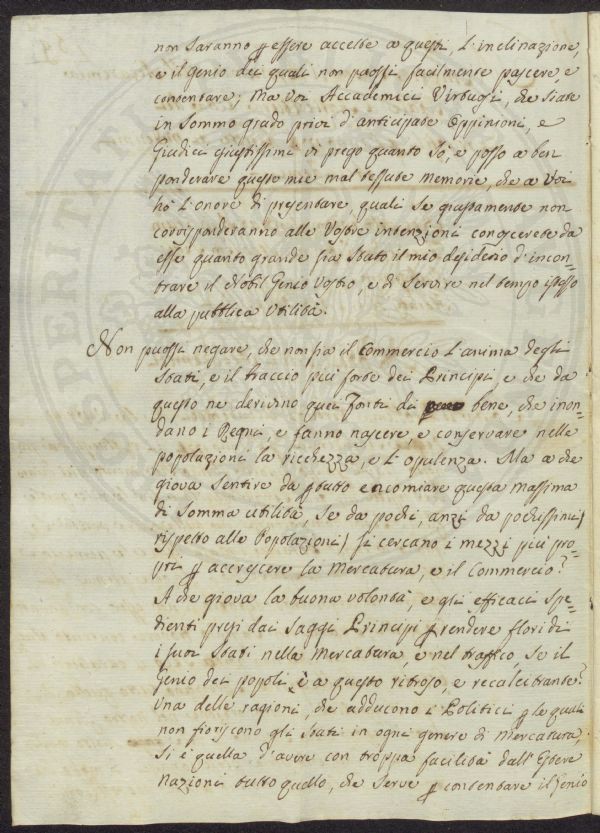 non saranno p essere accette a questi, l'inclinazione,
e il genio dei quali non puossi facilmente pascere, e
contentare; Ma Voi Accademici Virtuosi, che siate
in sommo grado privi d'anticipate Oppinioni, e
Giudici giustissimi vi prego quanto sò, e posso a ben
ponderare queste mie mal tessute memorie, che a Voi
hò l'onore di presentare, quali se giustamente non
corrisponderanno alle Vostre intenzioni conoscerete da
esse quanto grande sia stato il mio desiderio d'incon=
trare il Nobil Genio Vostro, e di servire nel tempo istesso
alla pubblica Utilità.
Non puossi negare, che non sia il Commercio l'anima degli
Stati, e il braccio più forte dei Principi, e che da
questo ne derivino quei Fonti di bene, che inon=
dano i Regni, e fanno nascere, e conservare nelle
popolazioni la ricchezza, e l'opulenza. Ma a che
giova sentire da p tutto encomiare questa massima
di somma utilità, se da pochi, anzi da pochissimi)
rispetto alle Popolazioni) si cercano i mezzi più pro
pri p accrescere la Mercatura, e il Commercio?
A che giova la buona volontà, e gli efficaci spe=
dienti presi dai Saggi Principi p rendere floridi
i suoi Stati nella Mercatura, e nel traffico, se il
Genio dei popoli è a questo ritroso, e recalcitrante?
Una delle ragioni, che adducono i Politici p le quali
non fioriscono gli Stati in ogni genere di Mercatura,
si è quella d'avere con troppa facilità dall'Estere
nazioni tutto quello, che serve p contentare il Genio